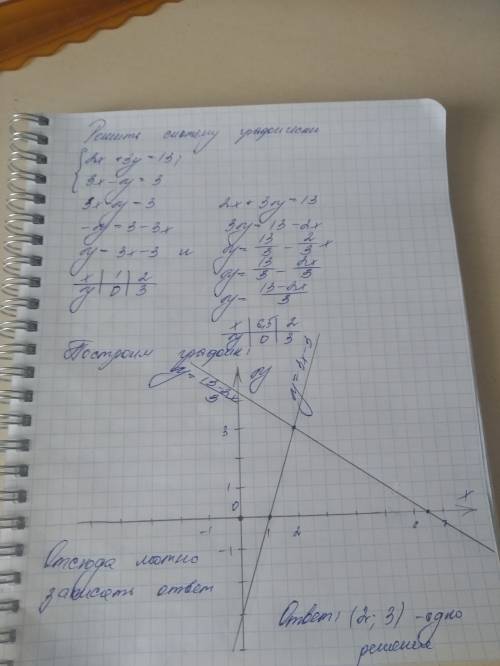 Решить систему графически
2x + 3y = 13;
3x - y = 3
3x - y = 3
-y = 3 - 3x
y = 3x - 3 и
x | 1 | 2
y | 0 | 3
2x + 3y = 13
3y = 13 - 2x
y = 13/3 - 2/3 x
y = 13/3 - 2x/3
y = (13-2x)/3
x | 6,5 | 2
y | 0 | 3
Построим график:
y = (13-2x)/3
y
y = 3x-3
3
1
0
-1
2
x
-1
Отсюда можно
записать ответ
Ответ: (2; 3) - одно
решение